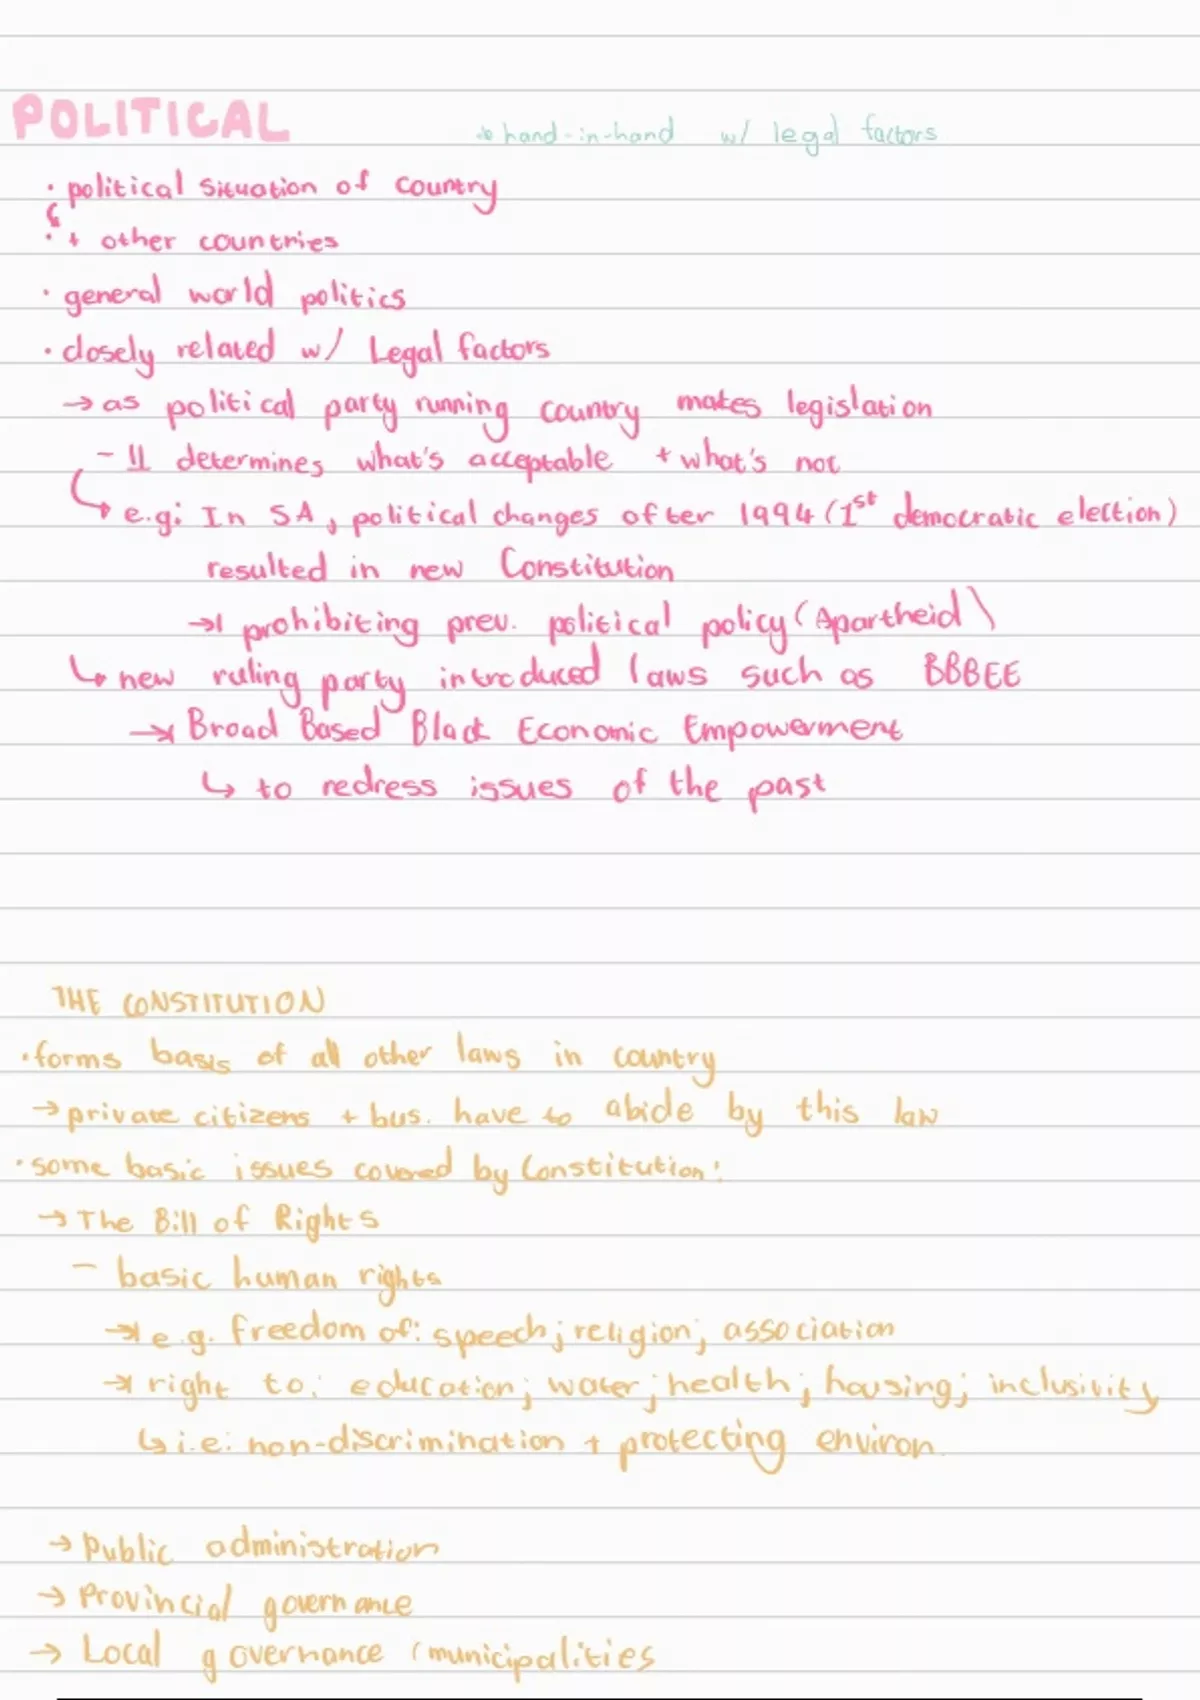 POLITICAL
hand-in-hand w/ legal factors
· political situation of country
· + other countries
· general world politics
· closely related w/ Legal factors
→ as political party running country makes legislation
- 11 determines what's acceptable + what's not
↳ e.g: In SA, political changes after 1994 (1st democratic election)
resulted in new Constitution
→ prohibiting prev. political policy (Apartheid)
↳ new ruling party introduced laws such as BBBEE
→ Broad Based Black Economic Empowerment
↳ to redress issues of the past
THE CONSTITUTION
· forms basis of all other laws in country
→ private citizens + bus. have to abide by this law
· some basic issues covered by Constitution:
→ The Bill of Rights
- basic human rights
→ e.g. freedom of: speech; religion; association
→ right to: education; water; health; housing; inclusivity
↳ i.e: non-discrimination + protecting environ.
→ Public administration
→ Provincial governance
→ Local governance (municipalities